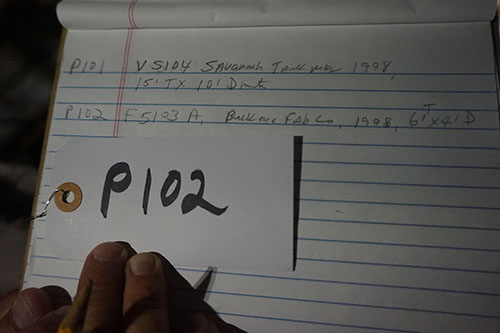 P101 V5104 Savannah Tank 1998,
15' T x 10' Dia
P102 F5103 A, Buckeye Fab Co, 1998, 6' T x 4' D
P102